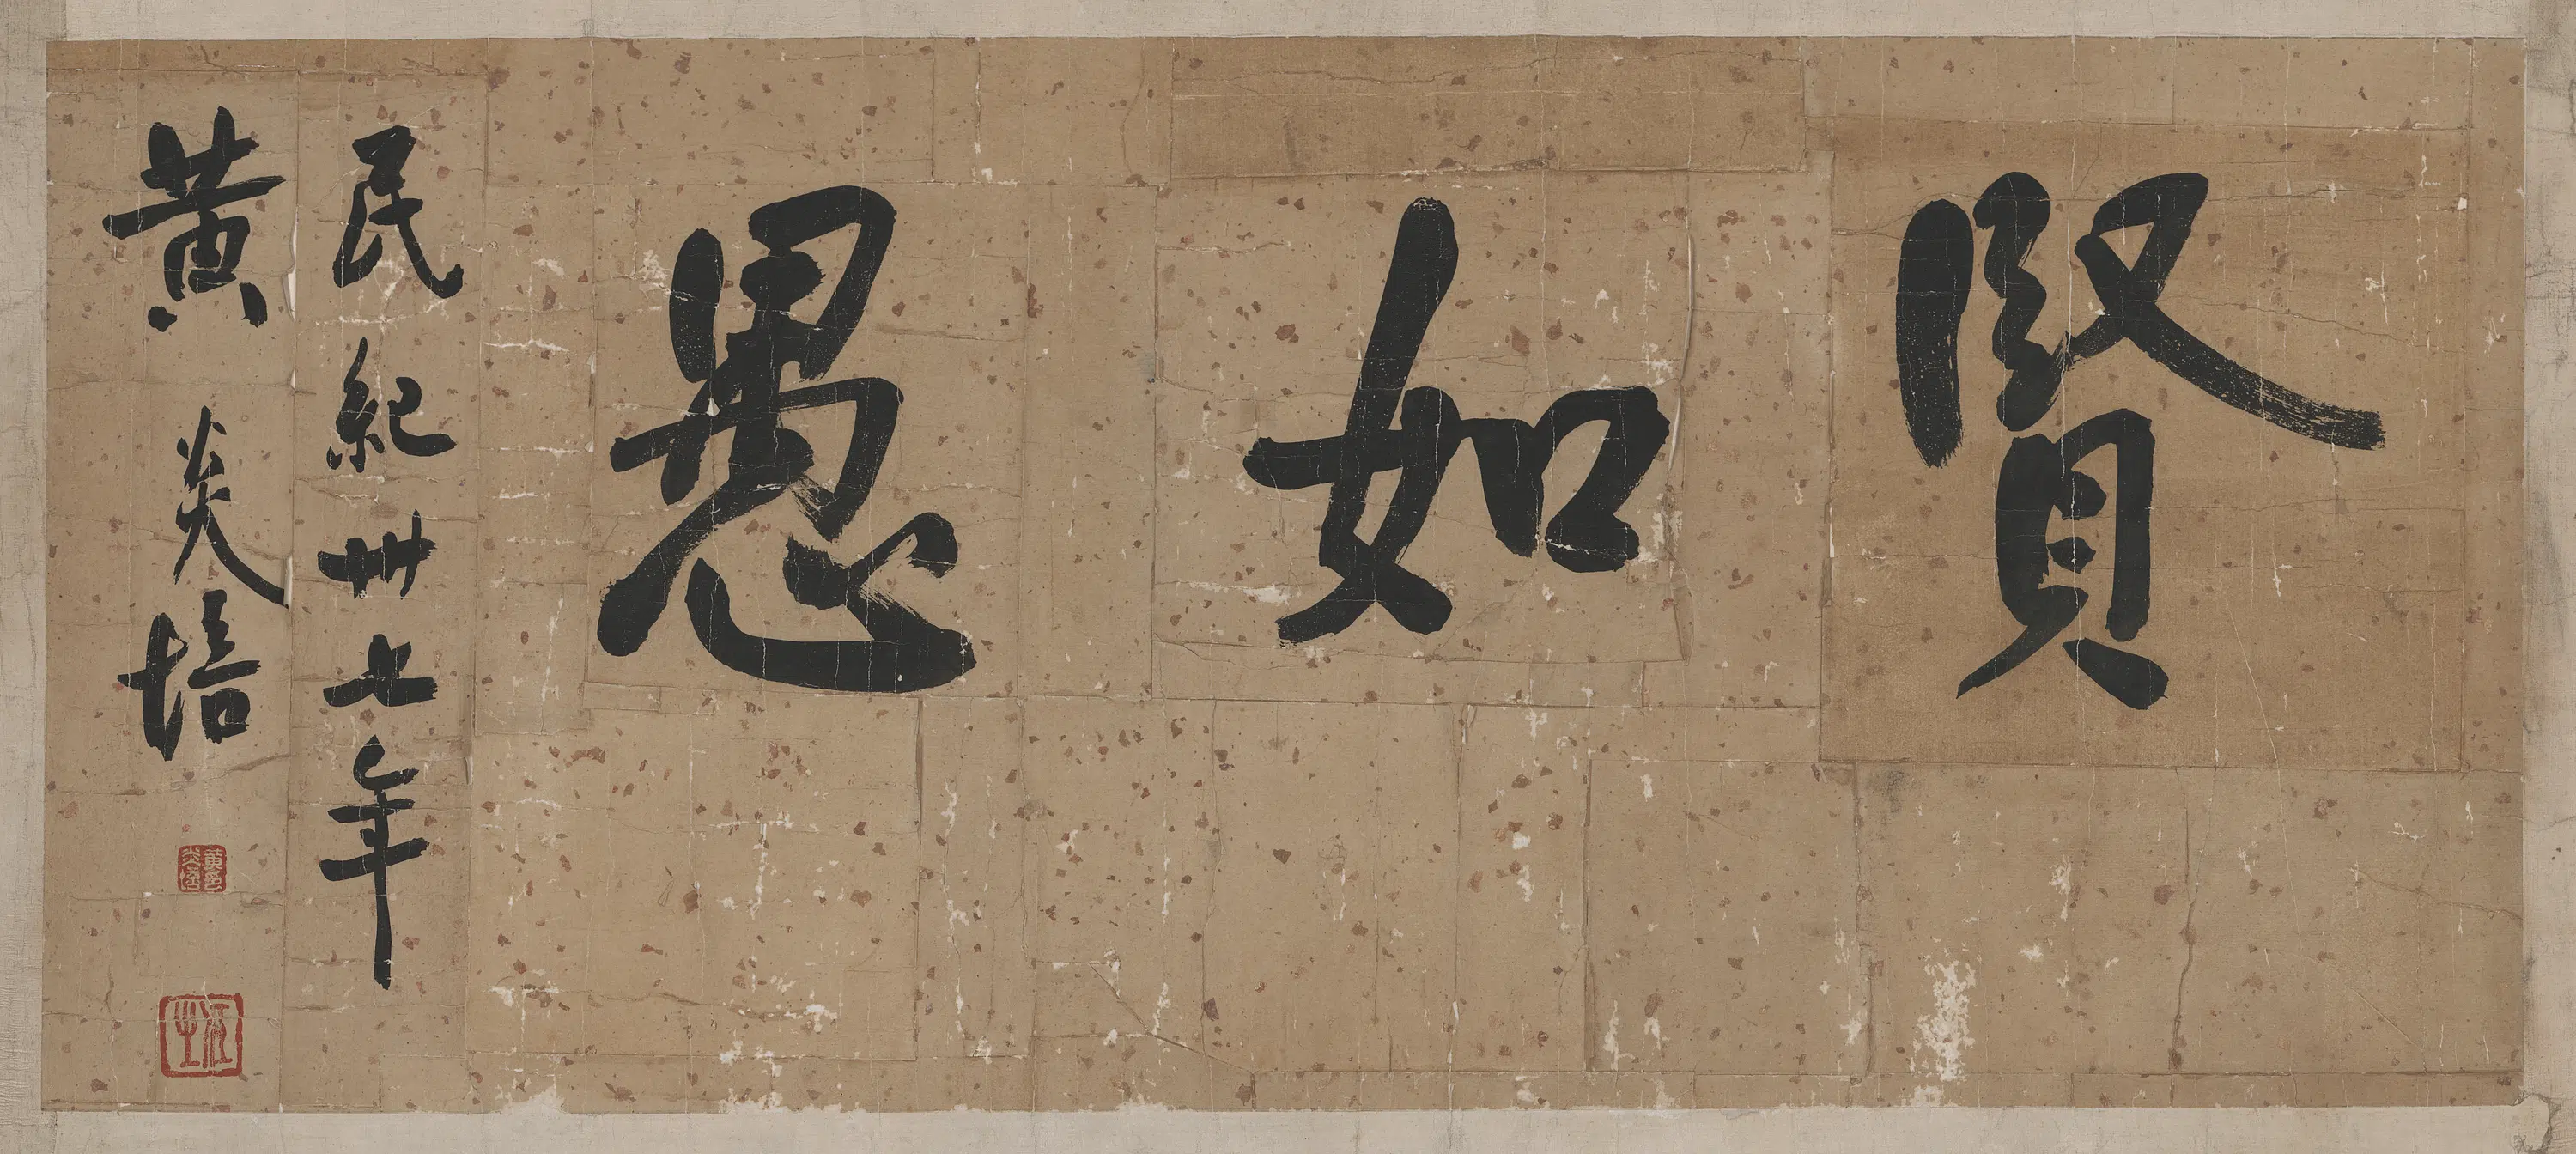 賢如愚
民紀卅七年
黃炎培
黃炎培